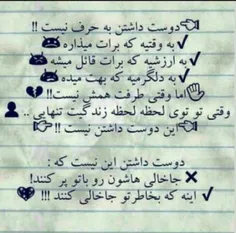 👈دوست داشتن به حرف نیست !!
✔به وقتیه که برات میذاره
✔به ارزشیه که برات قائل میشه
✔به دلگرمیه که بهت میده
✋اما وقتی طرفت همش نیست!! 💔
وقتی تو توی لحظه لحظه زندگیت تنهایی .. 👤
👈این دوست داشتن نیست !! 👉
دوست داشتن این نیست که :
❌ جاخالی هاشون رو باتو پر کنند!
✔ اینه که بخاطرتو جاخالی کنند !!! 💔